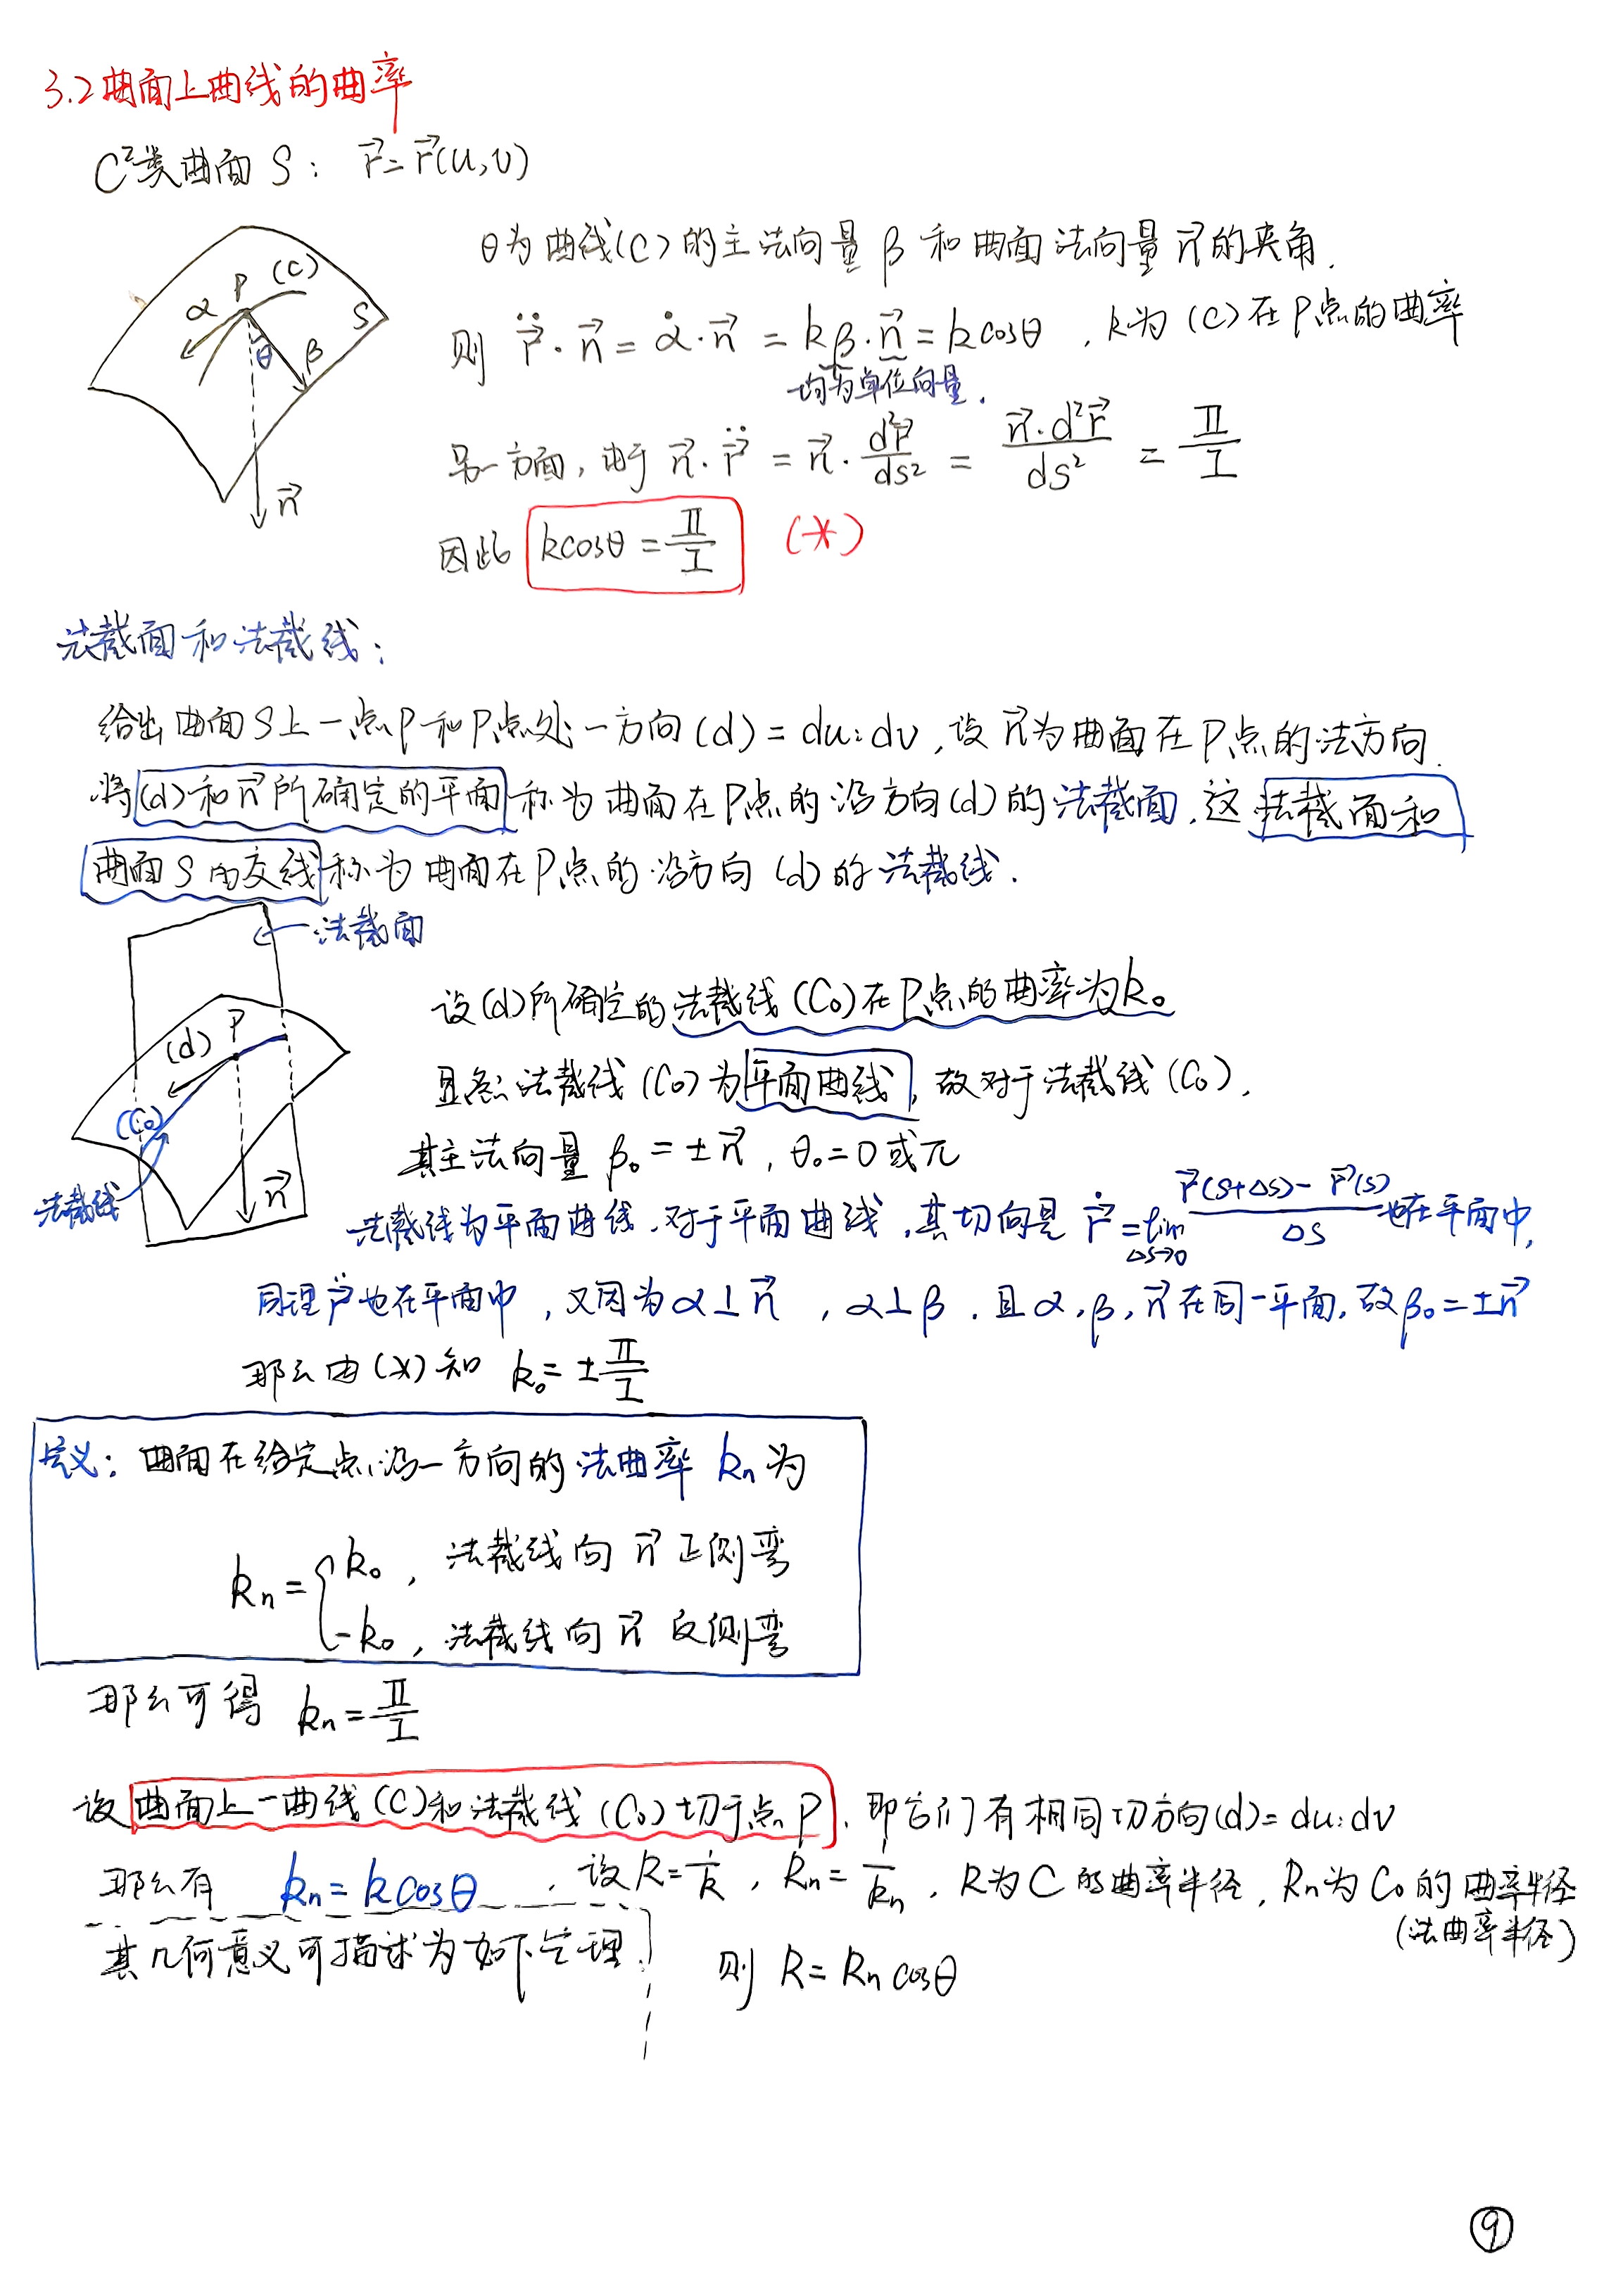 3.2 曲面上曲线的曲率
C²类曲面 S: r⃗=r⃗(u,v)
θ为曲线(C)的主法向量 β 和曲面法向量 n⃗ 的夹角.
P (C) α S θ β n⃗
则 r̈⃗·n⃗ = α̇·n⃗ = kβ·n⃗ = kcosθ , k为 (C) 在P点的曲率
均为单位向量.
另一方面, 由于 n⃗·r̈⃗ = n⃗·d²r⃗/ds² = n⃗·d²r⃗/ds² = Ⅱ/Ⅰ
因此 kcosθ = Ⅱ/Ⅰ (*)
法截面和法截线:
给出曲面S上一点P和P点处一方向(d) = du:dv, 设 n⃗为曲面在P点的法方向.
将(d)和n⃗所确定的平面称为曲面在P点的沿方向(d)的法截面, 这法截面和
曲面S的交线称为曲面在P点的沿方向(d)的法截线.
←法截面
(d) P (C₀) n⃗
法截线
设(d)所确定的法截线(C₀)在P点的曲率为k₀
且然法截线(C₀)为平面曲线, 故对于法截线(C₀),
其主法向量 β₀ = ±n⃗, θ₀=0或π
法截线为平面曲线. 对于平面曲线, 其切向是 ṙ⃗ = lim Δs→0 (r⃗(s+Δs) - r⃗(s))/Δs 也在平面中,
同理 r̈⃗ 也在平面中, 又因为α⊥n⃗, α⊥β. 且α,β,n⃗在同一平面, 故β₀=±n⃗
那么由(*)知 k₀ = ±Ⅱ/Ⅰ
定义: 曲面在给定点沿一方向的法曲率 kₙ 为
kₙ = { k₀, 法截线向 n⃗ 正侧弯
-k₀, 法截线向 n⃗ 反侧弯
那么可得 kₙ = Ⅱ/Ⅰ
设曲面上一曲线(C)和法截线(C₀)切于点P, 即它们有相同切方向(d)=du:dv
那么有 kₙ = kcosθ , 设R=1/k, Rₙ=1/kₙ, R为C的曲率半径, Rₙ为C₀的曲率半径
(法曲率半径)
其几何意义可描述为如下定理. 则 R = Rₙcosθ
⑨